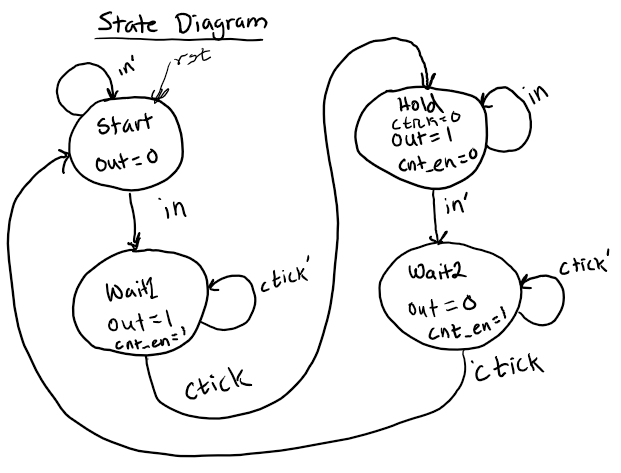 State Diagram
in'
rst
Start
out=0
in
Wait1
out=1
cnt_en=1
ctick'
ctick
Hold
out=1
cnt_en=0
in
in'
Wait2
out=0
cnt_en=1
ctick'
ctick